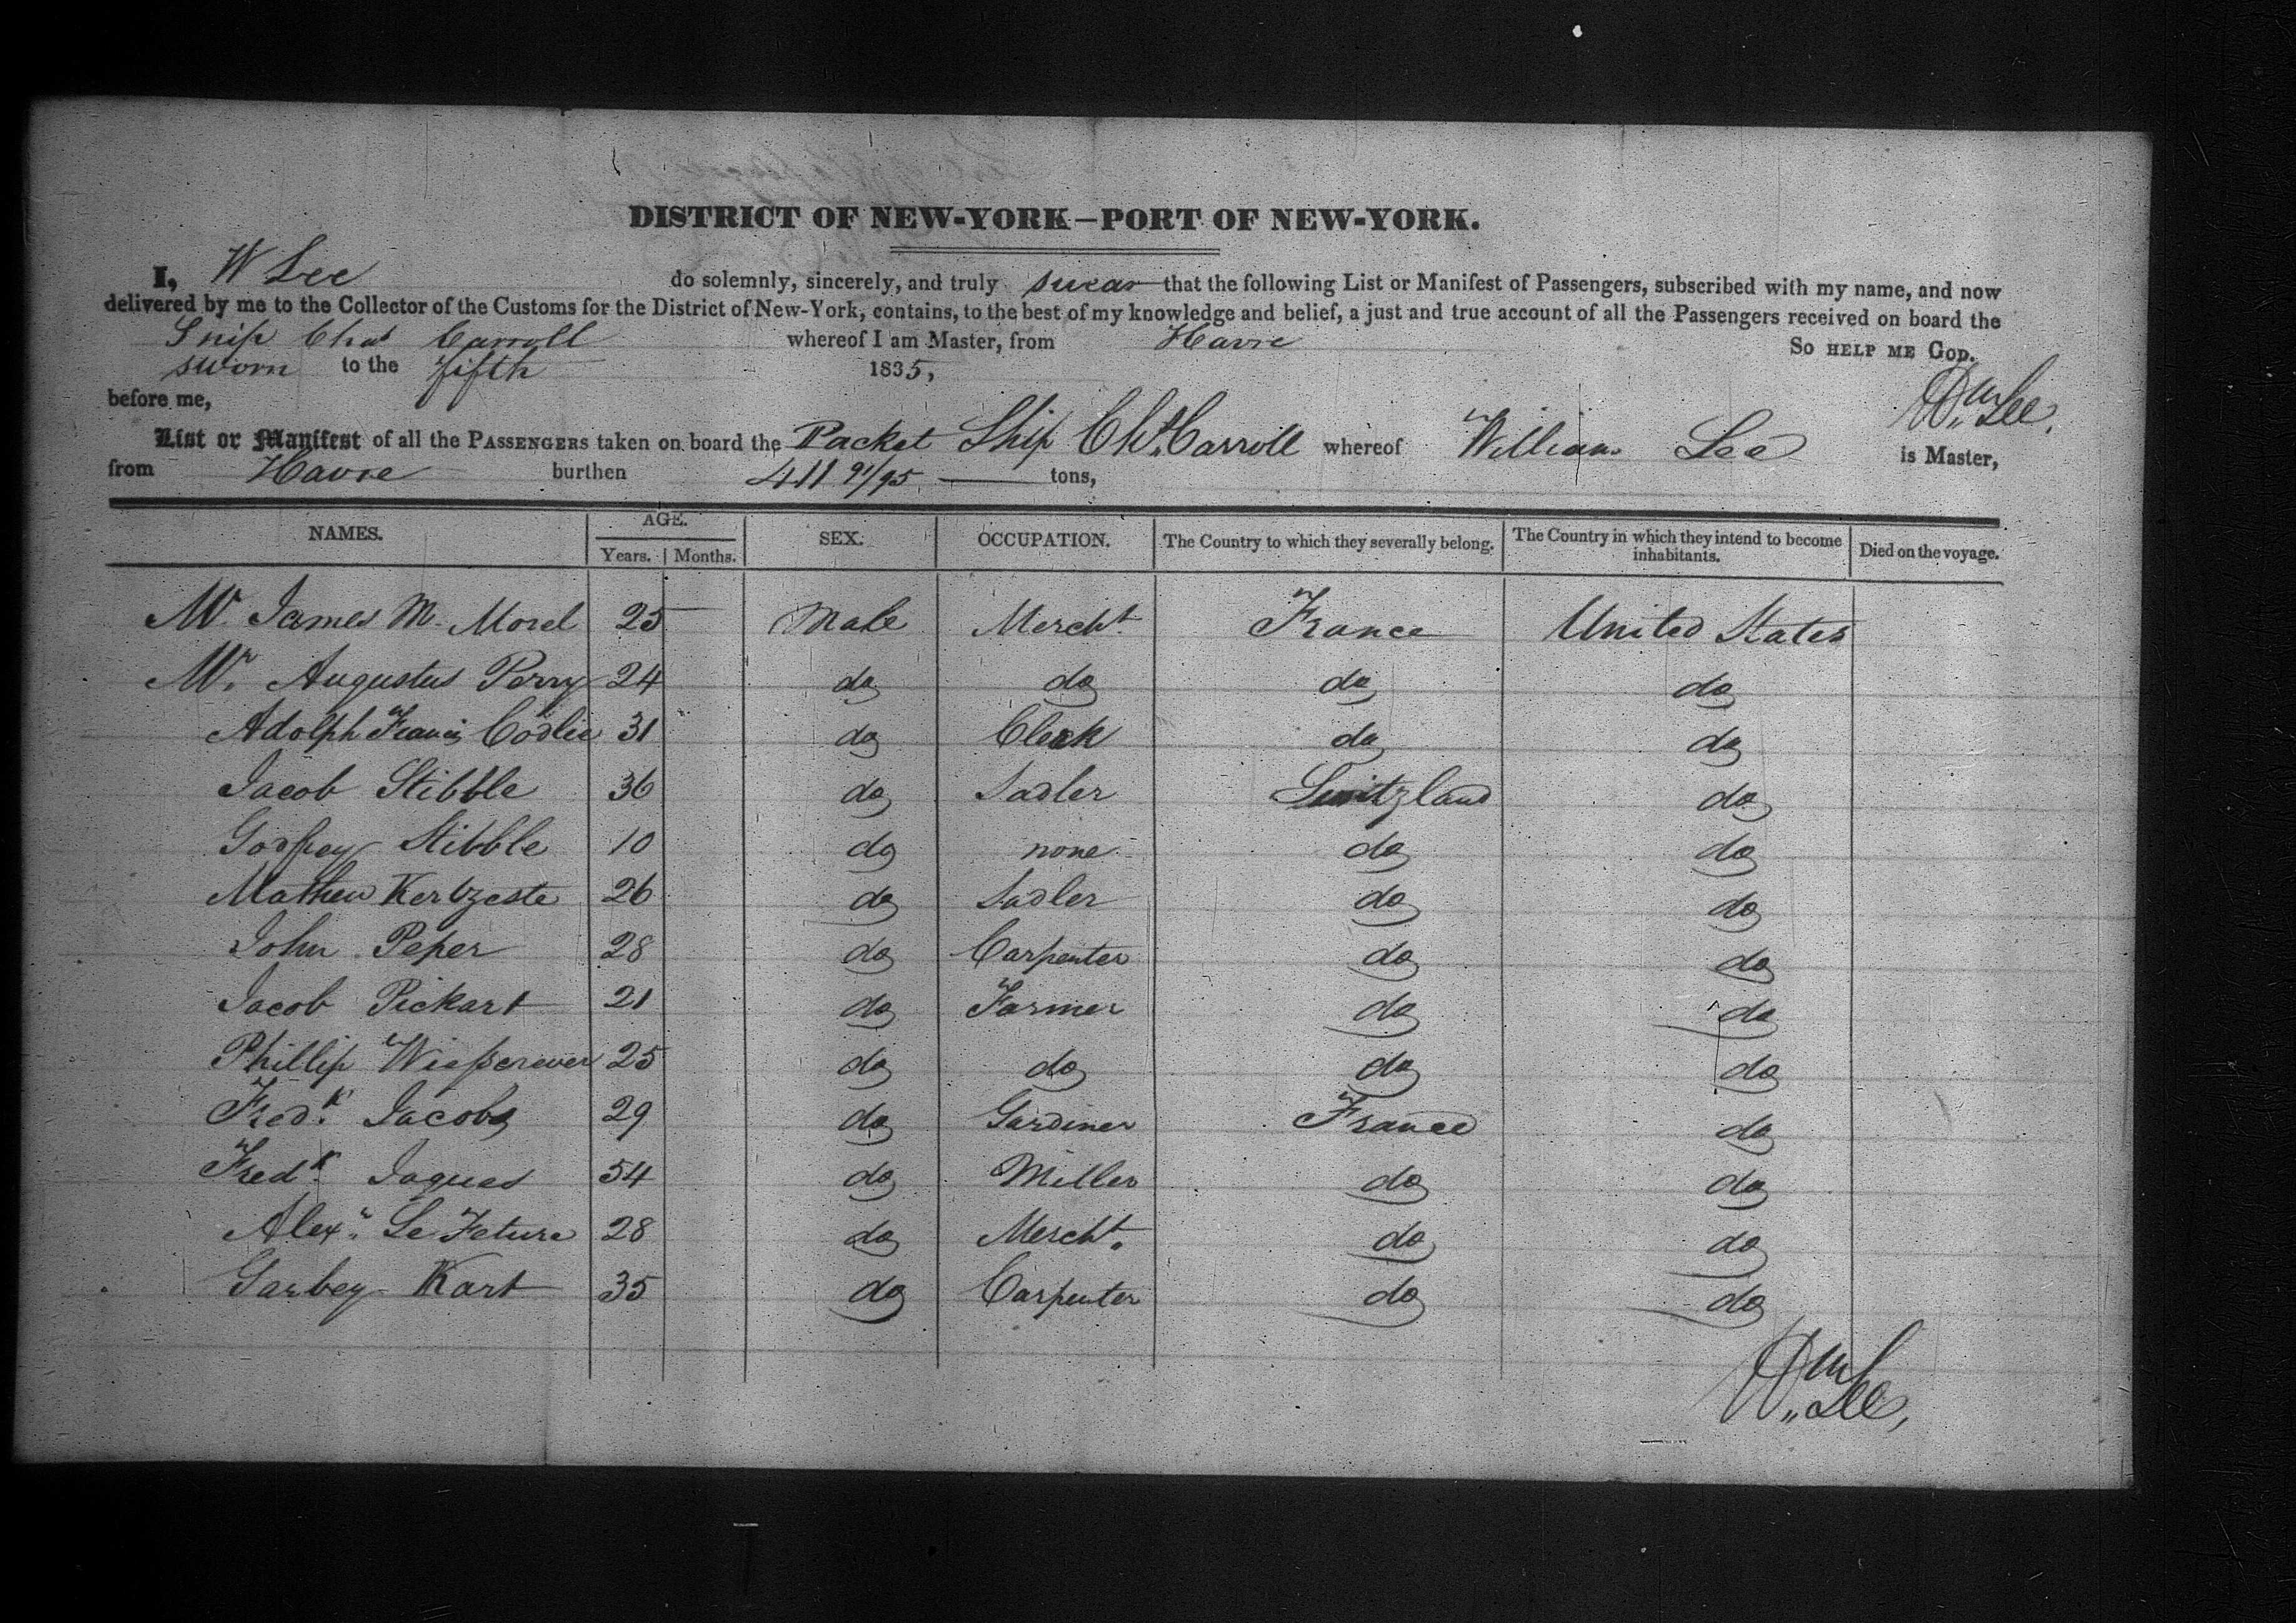 DISTRICT OF NEW-YORK—PORT OF NEW-YORK.
I, W Lee do solemnly, sincerely, and truly swear that the following List or Manifest of Passengers, subscribed with my name, and now
delivered by me to the Collector of the Customs for the District of New-York, contains, to the best of my knowledge and belief, a just and true account of all the Passengers received on board the
Ship Chas Carroll whereof I am Master, from Havre So HELP ME GOD.
sworn to the fifth 1835,
before me, Wm Lee,
List or Manifest of all the PASSENGERS taken on board the Packet Ship Chs. Carroll whereof William Lee is Master,
from Havre burthen 411 91/95 tons,
NAMES. AGE. Years. Months. SEX. OCCUPATION. The Country to which they severally belong. The Country in which they intend to become inhabitants. Died on the voyage.
Mr. James M. Morel 25 Male Mercht. France United States
Mr. Augustus Perry 24 do do do do
Adolph Francis Codlie 31 do Clerk do do
Jacob Stibble 36 do Sadler Switzland do
Godfrey Stibble 10 do none do do
Mathew Kertzeste 26 do Sadler do do
John Peper 28 do Carpenter do do
Jacob Pickart 21 do Farmer do do
Phillip 25 do do do do
Fredk. Jacobs 29 do Gardiner France do
Fredk. Jaques 54 do Miller do do
Alexr. Le Feture 28 do Mercht. do do
Garbey Kart 35 do Carpenter do do
Wm Lee,